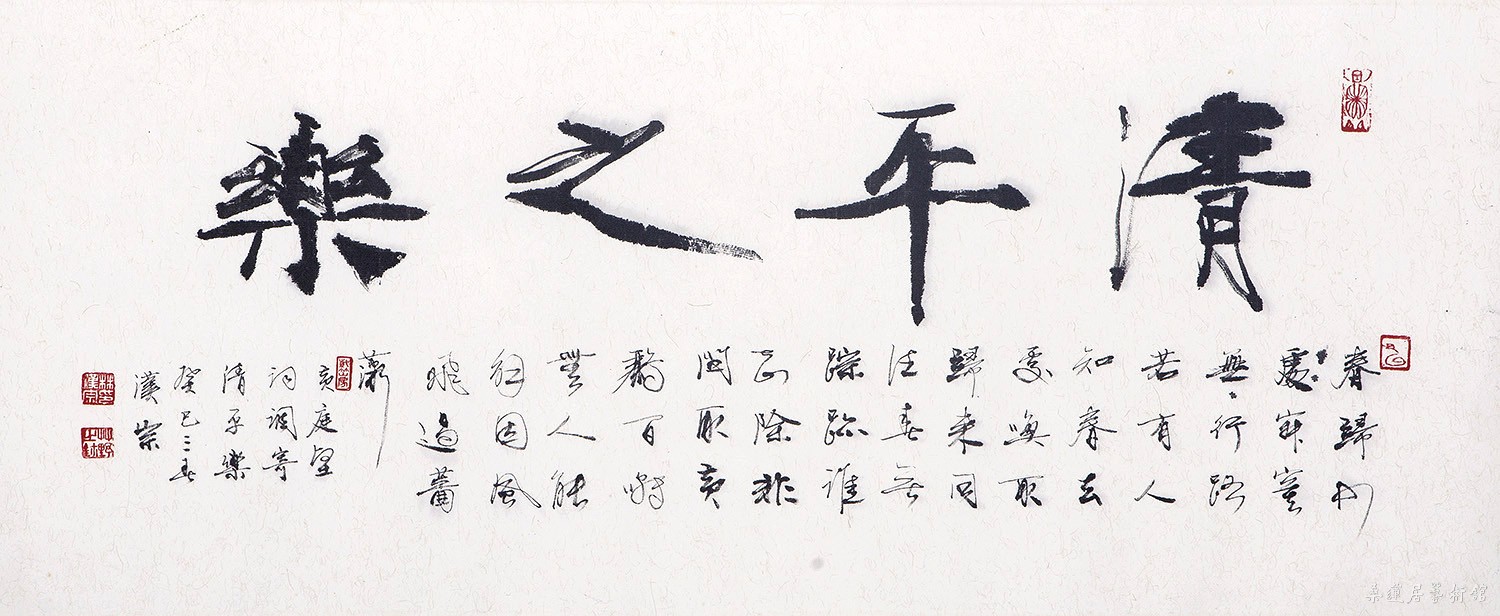 清平之樂
春歸何
處寂寞
無行路
若有人
知春去
處喚取
歸来同
住春無
踪跡誰
知除非
問取黄
鸝百囀
無人能
解因風
飛過薔
薇
黄庭堅
詞調寄
清平樂
癸巳三春
漢宗
桑蓮居藝術館